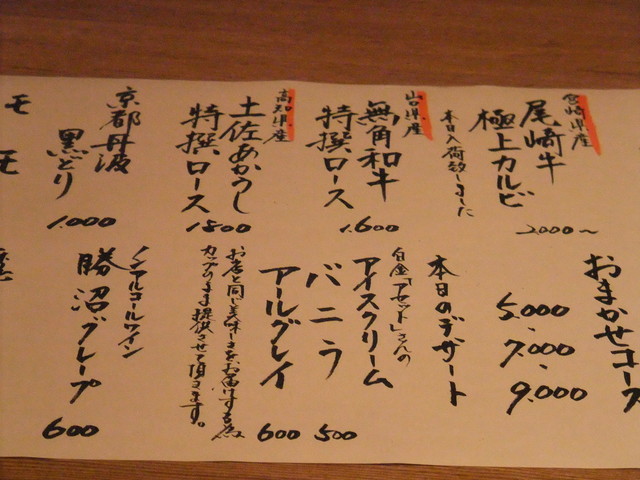 宮崎県産
尾崎牛
極上カルビ
2000〜
本日入荷致しました
山口県産
無角和牛
特撰ロース
1.600
高知県産
土佐あかうし
特撰ロース
1800
京都丹波
黒どり
1.000
モ
モ
おまかせコース
5.000、
7.000、
9.000
本日のデザート
アイスクリーム
バニラ
500
アールグレイ
600
お店と同じ美味しさをお届けする為
カップのまま提供させて頂きます。
ノンアルコールワイン
勝沼グレープ
600